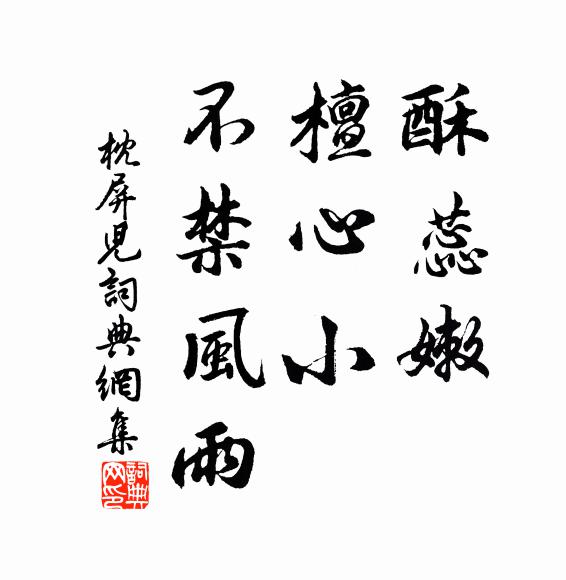 酥蕊嫩
檀心小
不禁風雨
枕屏児詞典網集
詞典
网印